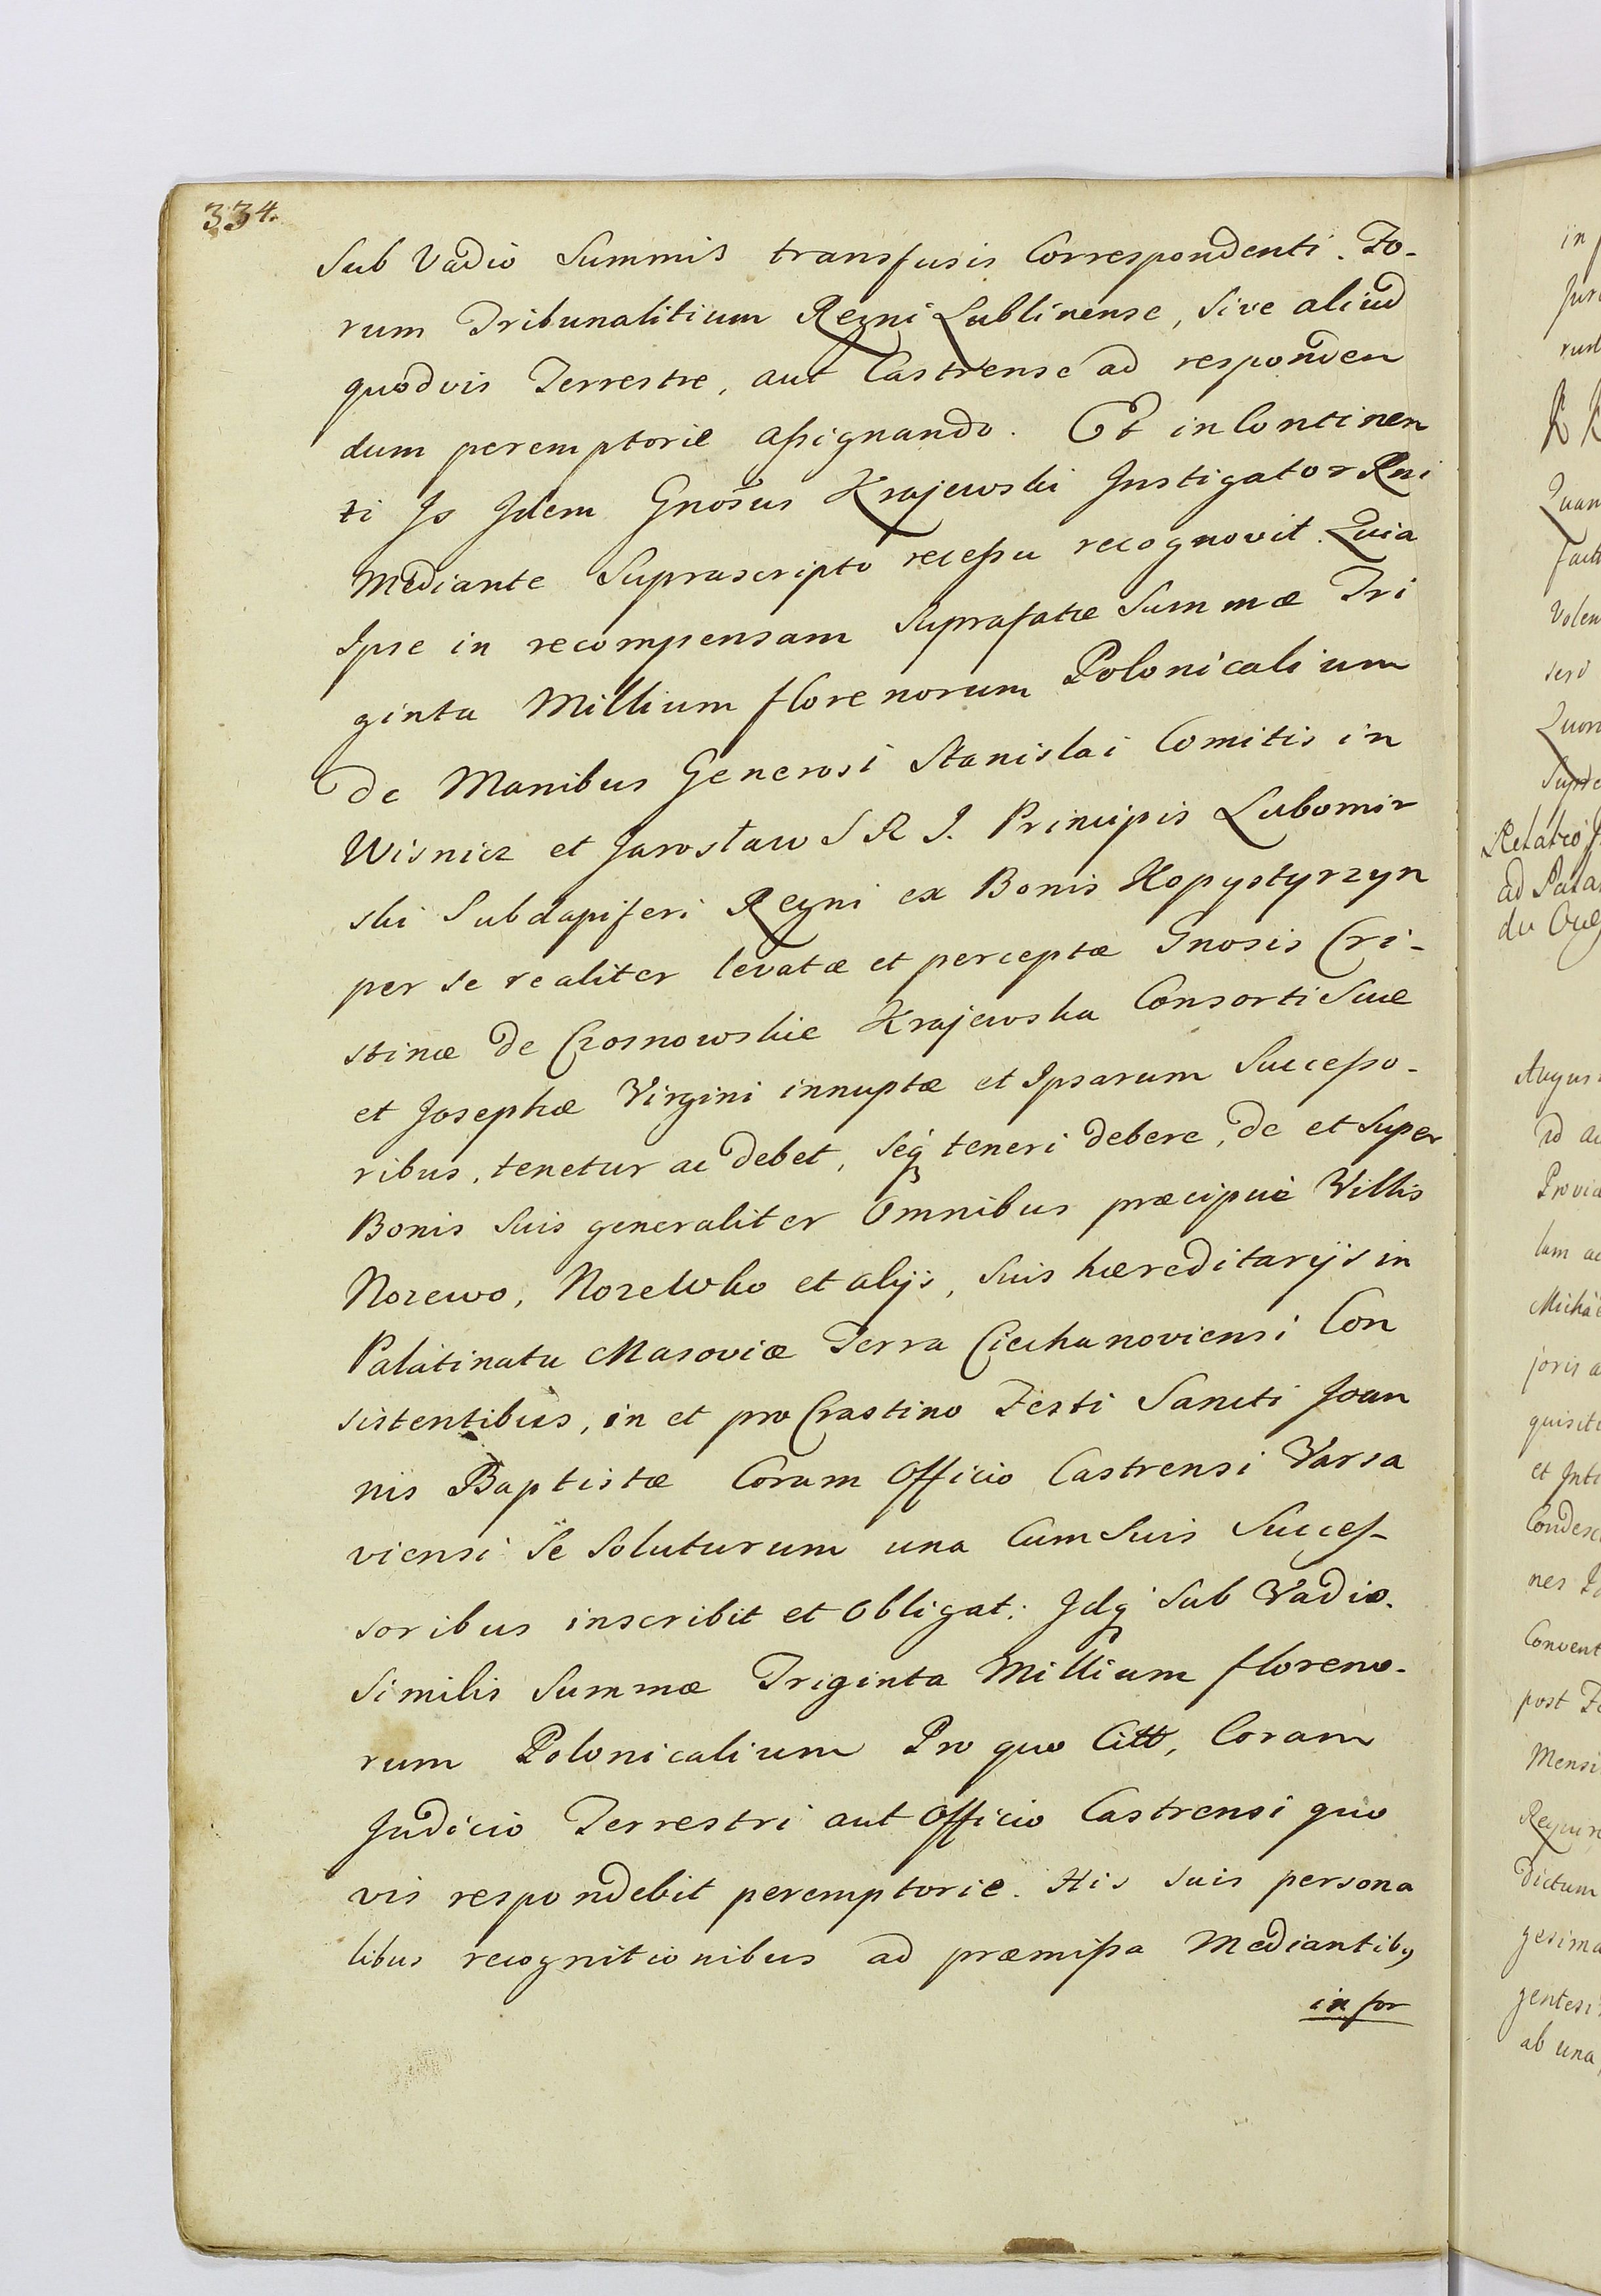 334.
Sub Vadio Summis transfusis Correspondenti. Fo-
rum Tribunalitium Regni Lublinense, sive aliud
quodvis Terrestre, aut Castrense ad responden
dum peremptorie assignando. Et in Continen
ti Is Idem Gnosus Krajewski Instigator Rni
Mediante Suprascripto recessu recognovit. Quia
Ipse in recompensam Suprafatæ Summæ Tri
ginta Millium florenorum Polonicalium
De Manibus Generosi Stanislai Comitis in
Wisnicz et Jarosław S R J. Principis Lubomir
ski Subdapiferi Regni ex Bonis Kopystyrzyn
per se realiter levatæ et perceptæ Gnosis Cri-
stinæ de Czosnowskie Krajewska Consorti Suæ
et Josephæ Virgini innuptæ et Ipsarum Successo-
ribus, tenetur ac debet, seq teneri debere, de et Super
Bonis Suis generaliter Omnibus præcipuè Villis
Nozewo, Nozewko et alijs, Suis hæreditarijs in
Palatinatu Masoviæ Terra Ciechanoviensi Con
sistentibus, in et pro Crastino Festi Sancti Joan
nis Baptistæ Coram Officio Castrensi Varsa
viensi Se Soluturum una Cum Suis Succes-
soribus inscribit et Obligat: Idq Sub Vadio.
Similis Summæ Triginta Millium floreno-
rum Polonicalium Pro quo Citt, Coram
Judicio Terrestri aut Officio Castrensi quo
vis respondebit peremptorie. His suis persona
libus recognitionibus ad præmissa Mediantibq
in for
in
rum
Quan
Volen
Relatio
Augus
Michae
joris
quisiti
Convent
post
Mensi
Dictum
ab una